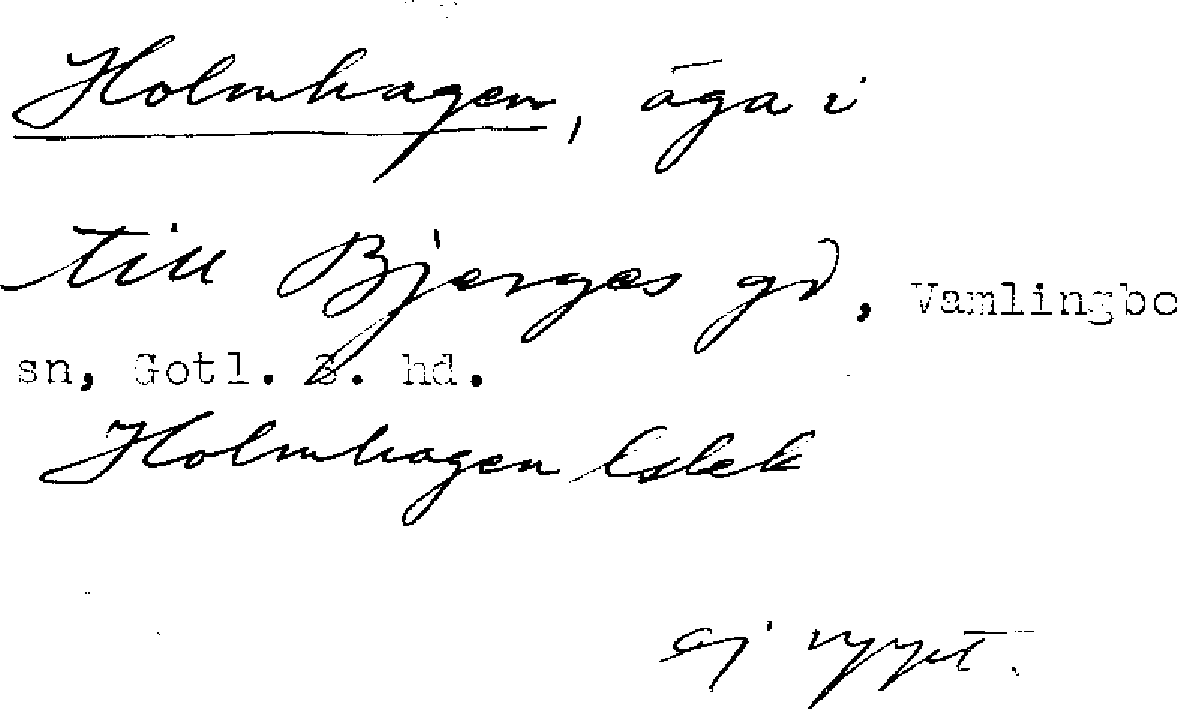 Holmhagen, äga i
till Bjerges gd, Vamlingbo
sn, Gotl. S. hd.
Holmhagen
ej uppt.